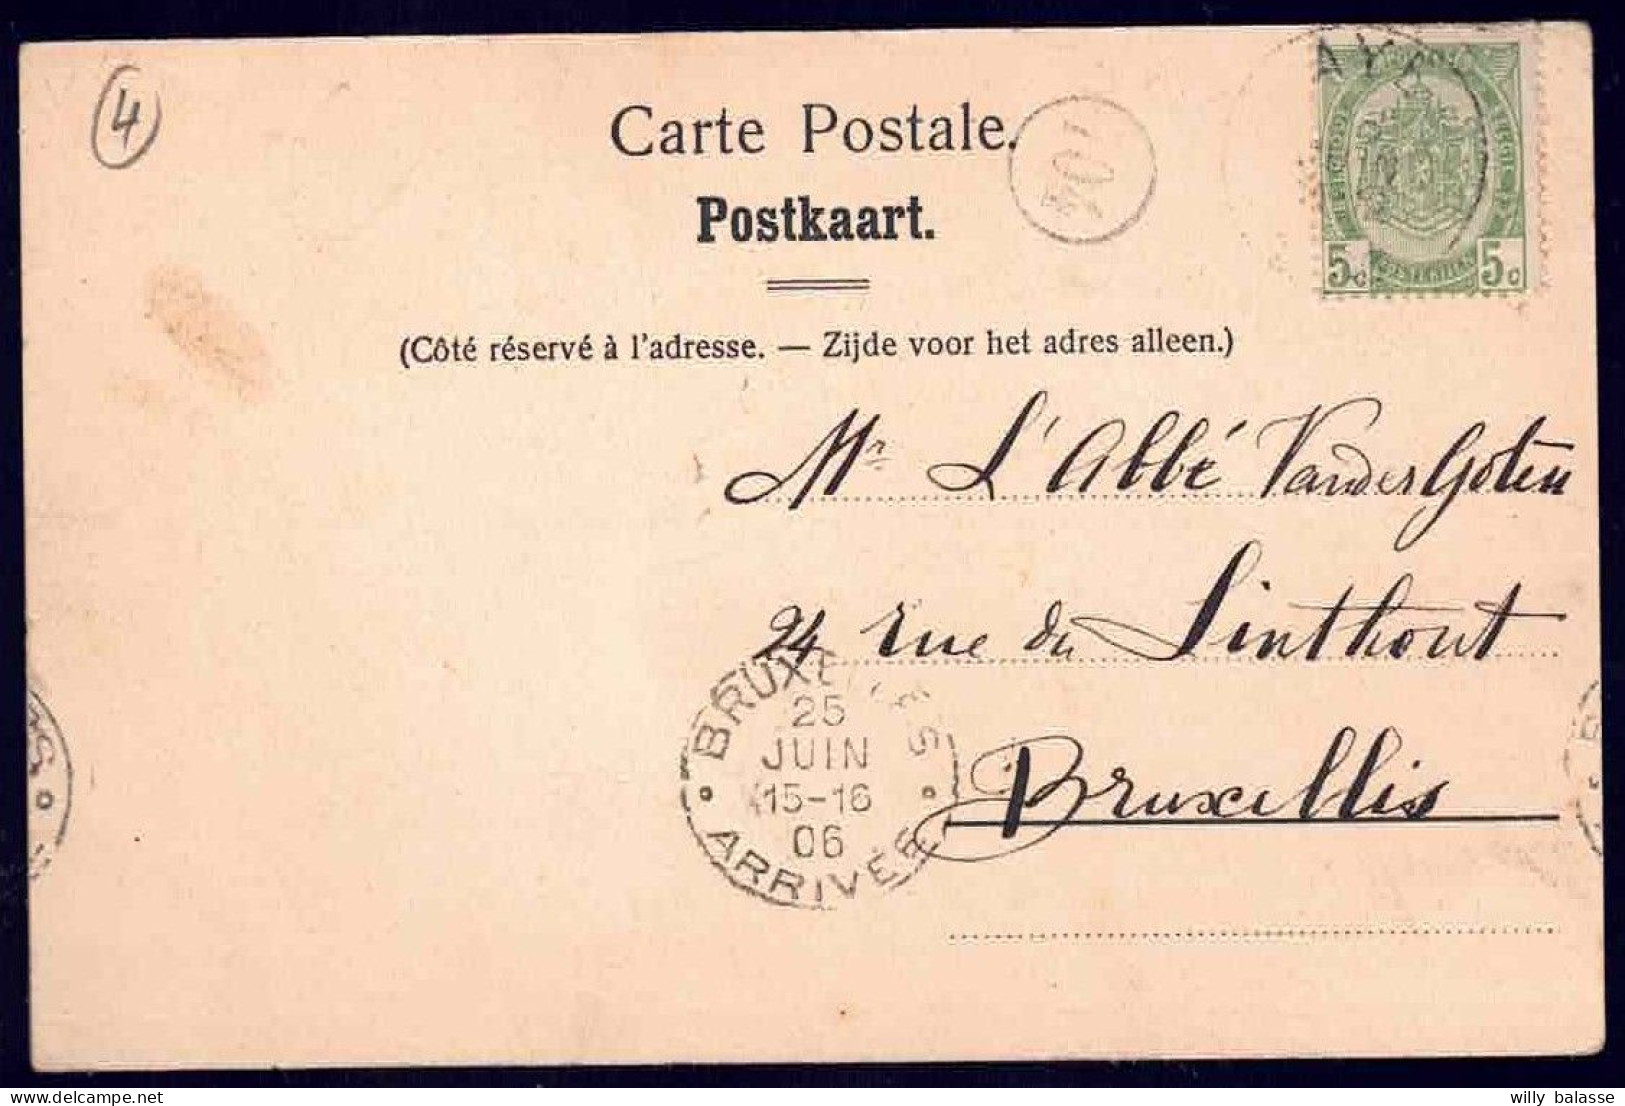 4
Carte Postale.
104
Postkaart.
5c 5c
(Côté réservé à l'adresse. — Zijde voor het adres alleen.)
Mr L'Abbé VanderGoten
24 rue du Linthout
Bruxelles
BRUXELLES
25
JUIN
15-16
06
ARRIVÉE
willy balasse